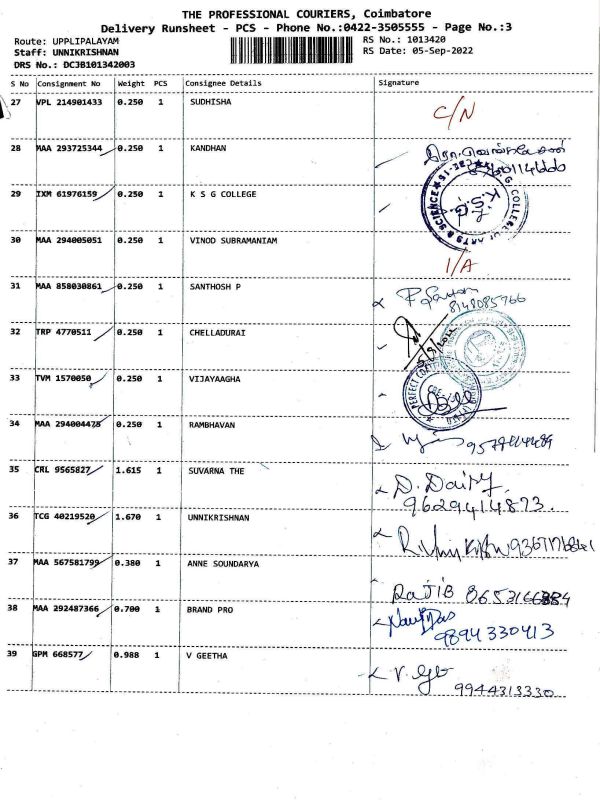 THE PROFESSIONAL COURIERS, Coimbatore
Delivery Runsheet - PCS - Phone No.:0422-3505555 - Page No.:3
Route: UPPLIPALAYAM RS No.: 1013420
Staff: UNNIKRISHNAN RS Date: 05-Sep-2022
DRS No.: DCJB101342003
S No Consignment No Weight PCS Consignee Details Signature
27 VPL 214901433 0.250 1 SUDHISHA C/N
28 MAA 293725344 0.250 1 KANDHAN
29 IXM 61976159 0.250 1 K S G COLLEGE
30 MAA 294005051 0.250 1 VINOD SUBRAMANIAM I/A
31 MAA 858030861 0.250 1 SANTHOSH P
8148085766
32 TRP 4770511 0.250 1 CHELLADURAI
33 TVM 1570050 0.250 1 VIJAYAAGHA
34 MAA 294004475 0.250 1 RAMBHAVAN
35 CRL 9565827 1.615 1 SUVARNA THE D. Dairy.
9629414873.
36 TCG 40219520 1.670 1 UNNIKRISHNAN
37 MAA 567581799 0.380 1 ANNE SOUNDARYA
RAJIB
38 MAA 292487366 0.700 1 BRAND PRO
9894330413
39 GPM 668577 0.988 1 V GEETHA
9944313330